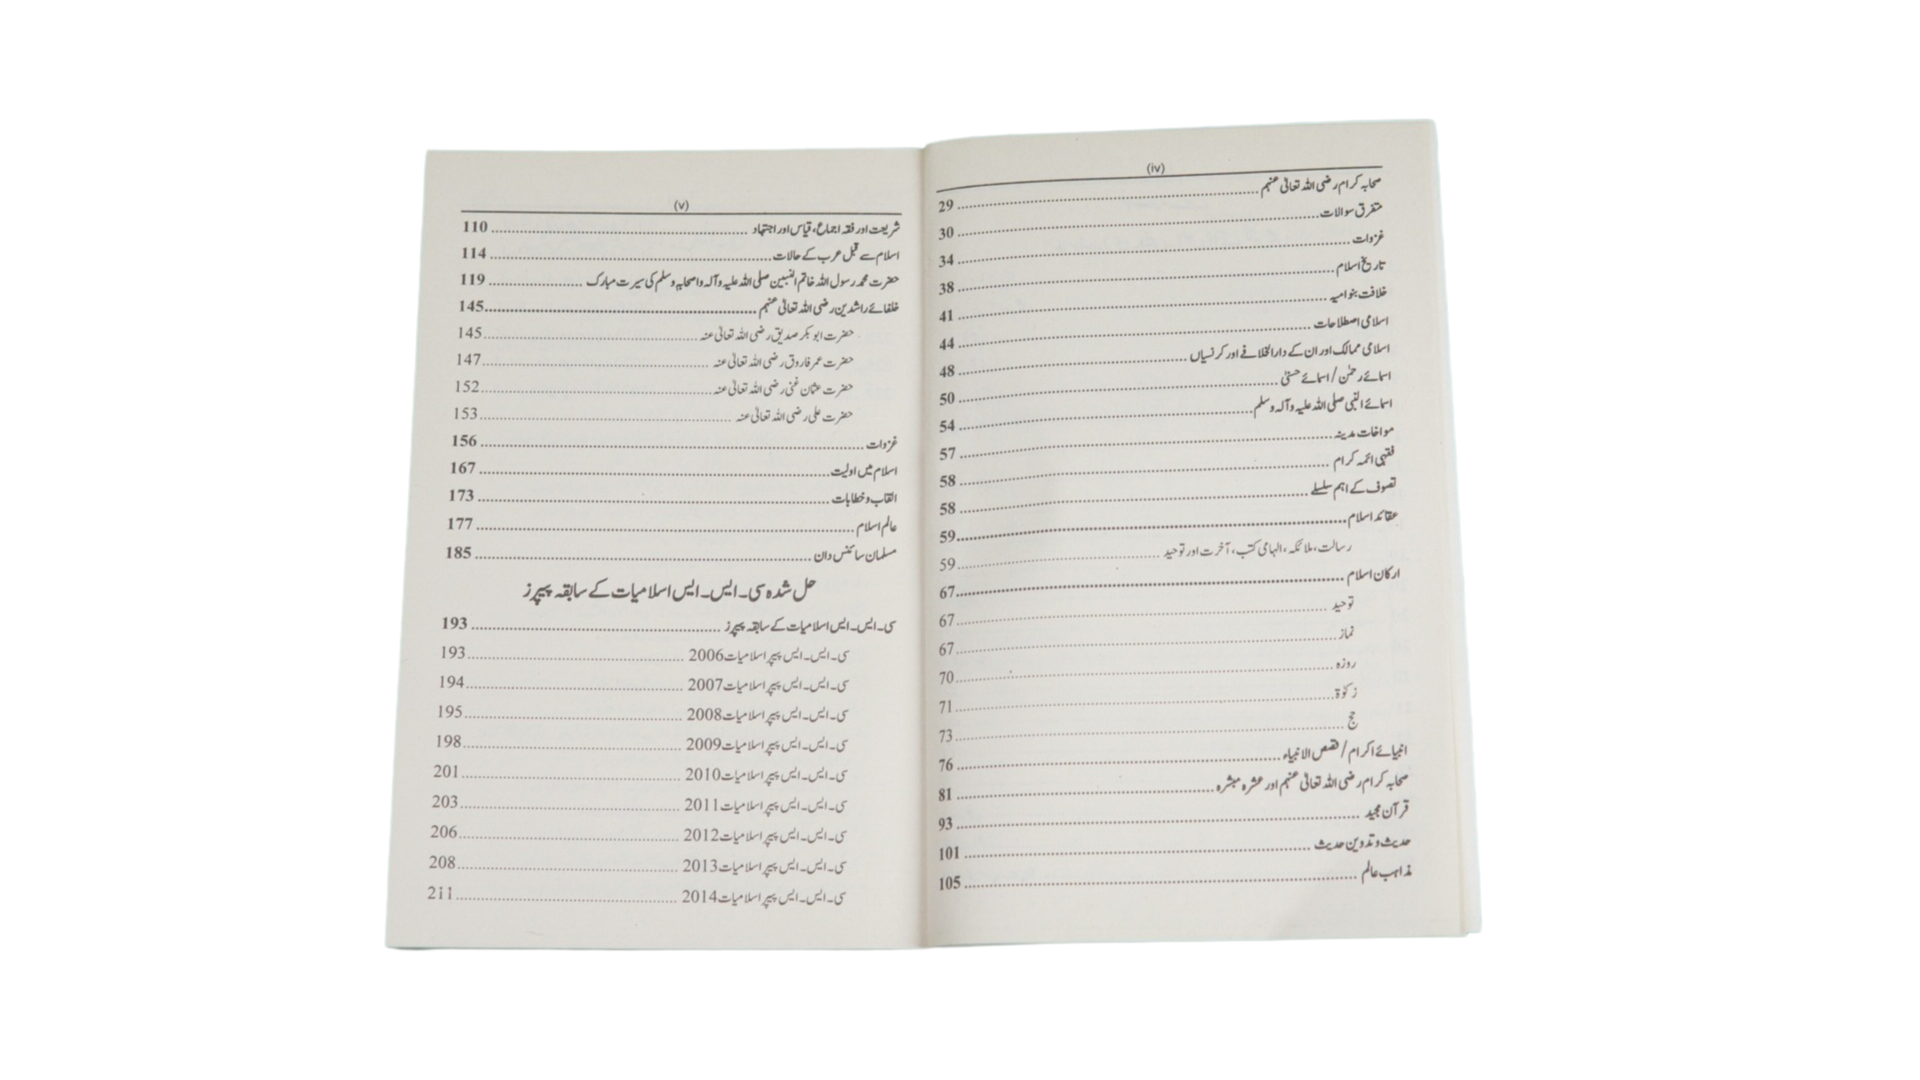 (iv)
صحابہ کرام رضی اللہ تعالیٰ عنہم ........ 29
متفرق سوالات ........ 30
غزوات ........ 34
تاریخ اسلام ........ 38
خلافت بنو امیہ ........ 41
اسلامی اصطلاحات ........ 44
اسلامی ممالک اور ان کے دارالخلافے اور کرنسیاں ........ 48
اسمائے رحمٰن/اسمائے حسنیٰ ........ 50
اسمائے النبی صلی اللہ علیہ وآلہ وسلم ........ 54
مواخات مدینہ ........ 57
فقہی ائمہ کرام ........ 58
تصوف کے اہم سلسلے ........ 58
عقائد اسلام ........ 59
رسالت، ملائکہ، الہامی کتب، آخرت اور توحید ........ 59
ارکان اسلام ........ 67
توحید ........ 67
نماز ........ 67
روزہ ........ 70
زکوٰۃ ........ 71
حج ........ 73
انبیائے اکرام/قصص الانبیاء ........ 76
صحابہ کرام رضی اللہ تعالیٰ عنہم اور عشرہ مبشرہ ........ 81
قرآن مجید ........ 93
حدیث و تدوین حدیث ........ 101
مذاہب عالم ........ 105
(v)
شریعت اور فقہ اجماع، قیاس اور اجتہاد ........ 110
اسلام سے قبل عرب کے حالات ........ 114
حضرت محمد رسول اللہ خاتم النبیین صلی اللہ علیہ وآلہ واصحابہ وسلم کی سیرت مبارک ........ 119
خلفائے راشدین رضی اللہ تعالیٰ عنہم ........ 145
حضرت ابو بکر صدیق رضی اللہ تعالیٰ عنہ ........ 145
حضرت عمر فاروق رضی اللہ تعالیٰ عنہ ........ 147
حضرت عثمان غنی رضی اللہ تعالیٰ عنہ ........ 152
حضرت علی رضی اللہ تعالیٰ عنہ ........ 153
غزوات ........ 156
اسلام میں اولیت ........ 167
القاب و خطابات ........ 173
عالم اسلام ........ 177
مسلمان سائنس دان ........ 185
حل شدہ سی۔ایس۔ایس اسلامیات کے سابقہ پیپرز
سی۔ایس۔ایس اسلامیات کے سابقہ پیپرز ........ 193
سی۔ایس۔ایس پیپر اسلامیات 2006 ........ 193
سی۔ایس۔ایس پیپر اسلامیات 2007 ........ 194
سی۔ایس۔ایس پیپر اسلامیات 2008 ........ 195
سی۔ایس۔ایس پیپر اسلامیات 2009 ........ 198
سی۔ایس۔ایس پیپر اسلامیات 2010 ........ 201
سی۔ایس۔ایس پیپر اسلامیات 2011 ........ 203
سی۔ایس۔ایس پیپر اسلامیات 2012 ........ 206
سی۔ایس۔ایس پیپر اسلامیات 2013 ........ 208
سی۔ایس۔ایس پیپر اسلامیات 2014 ........ 211